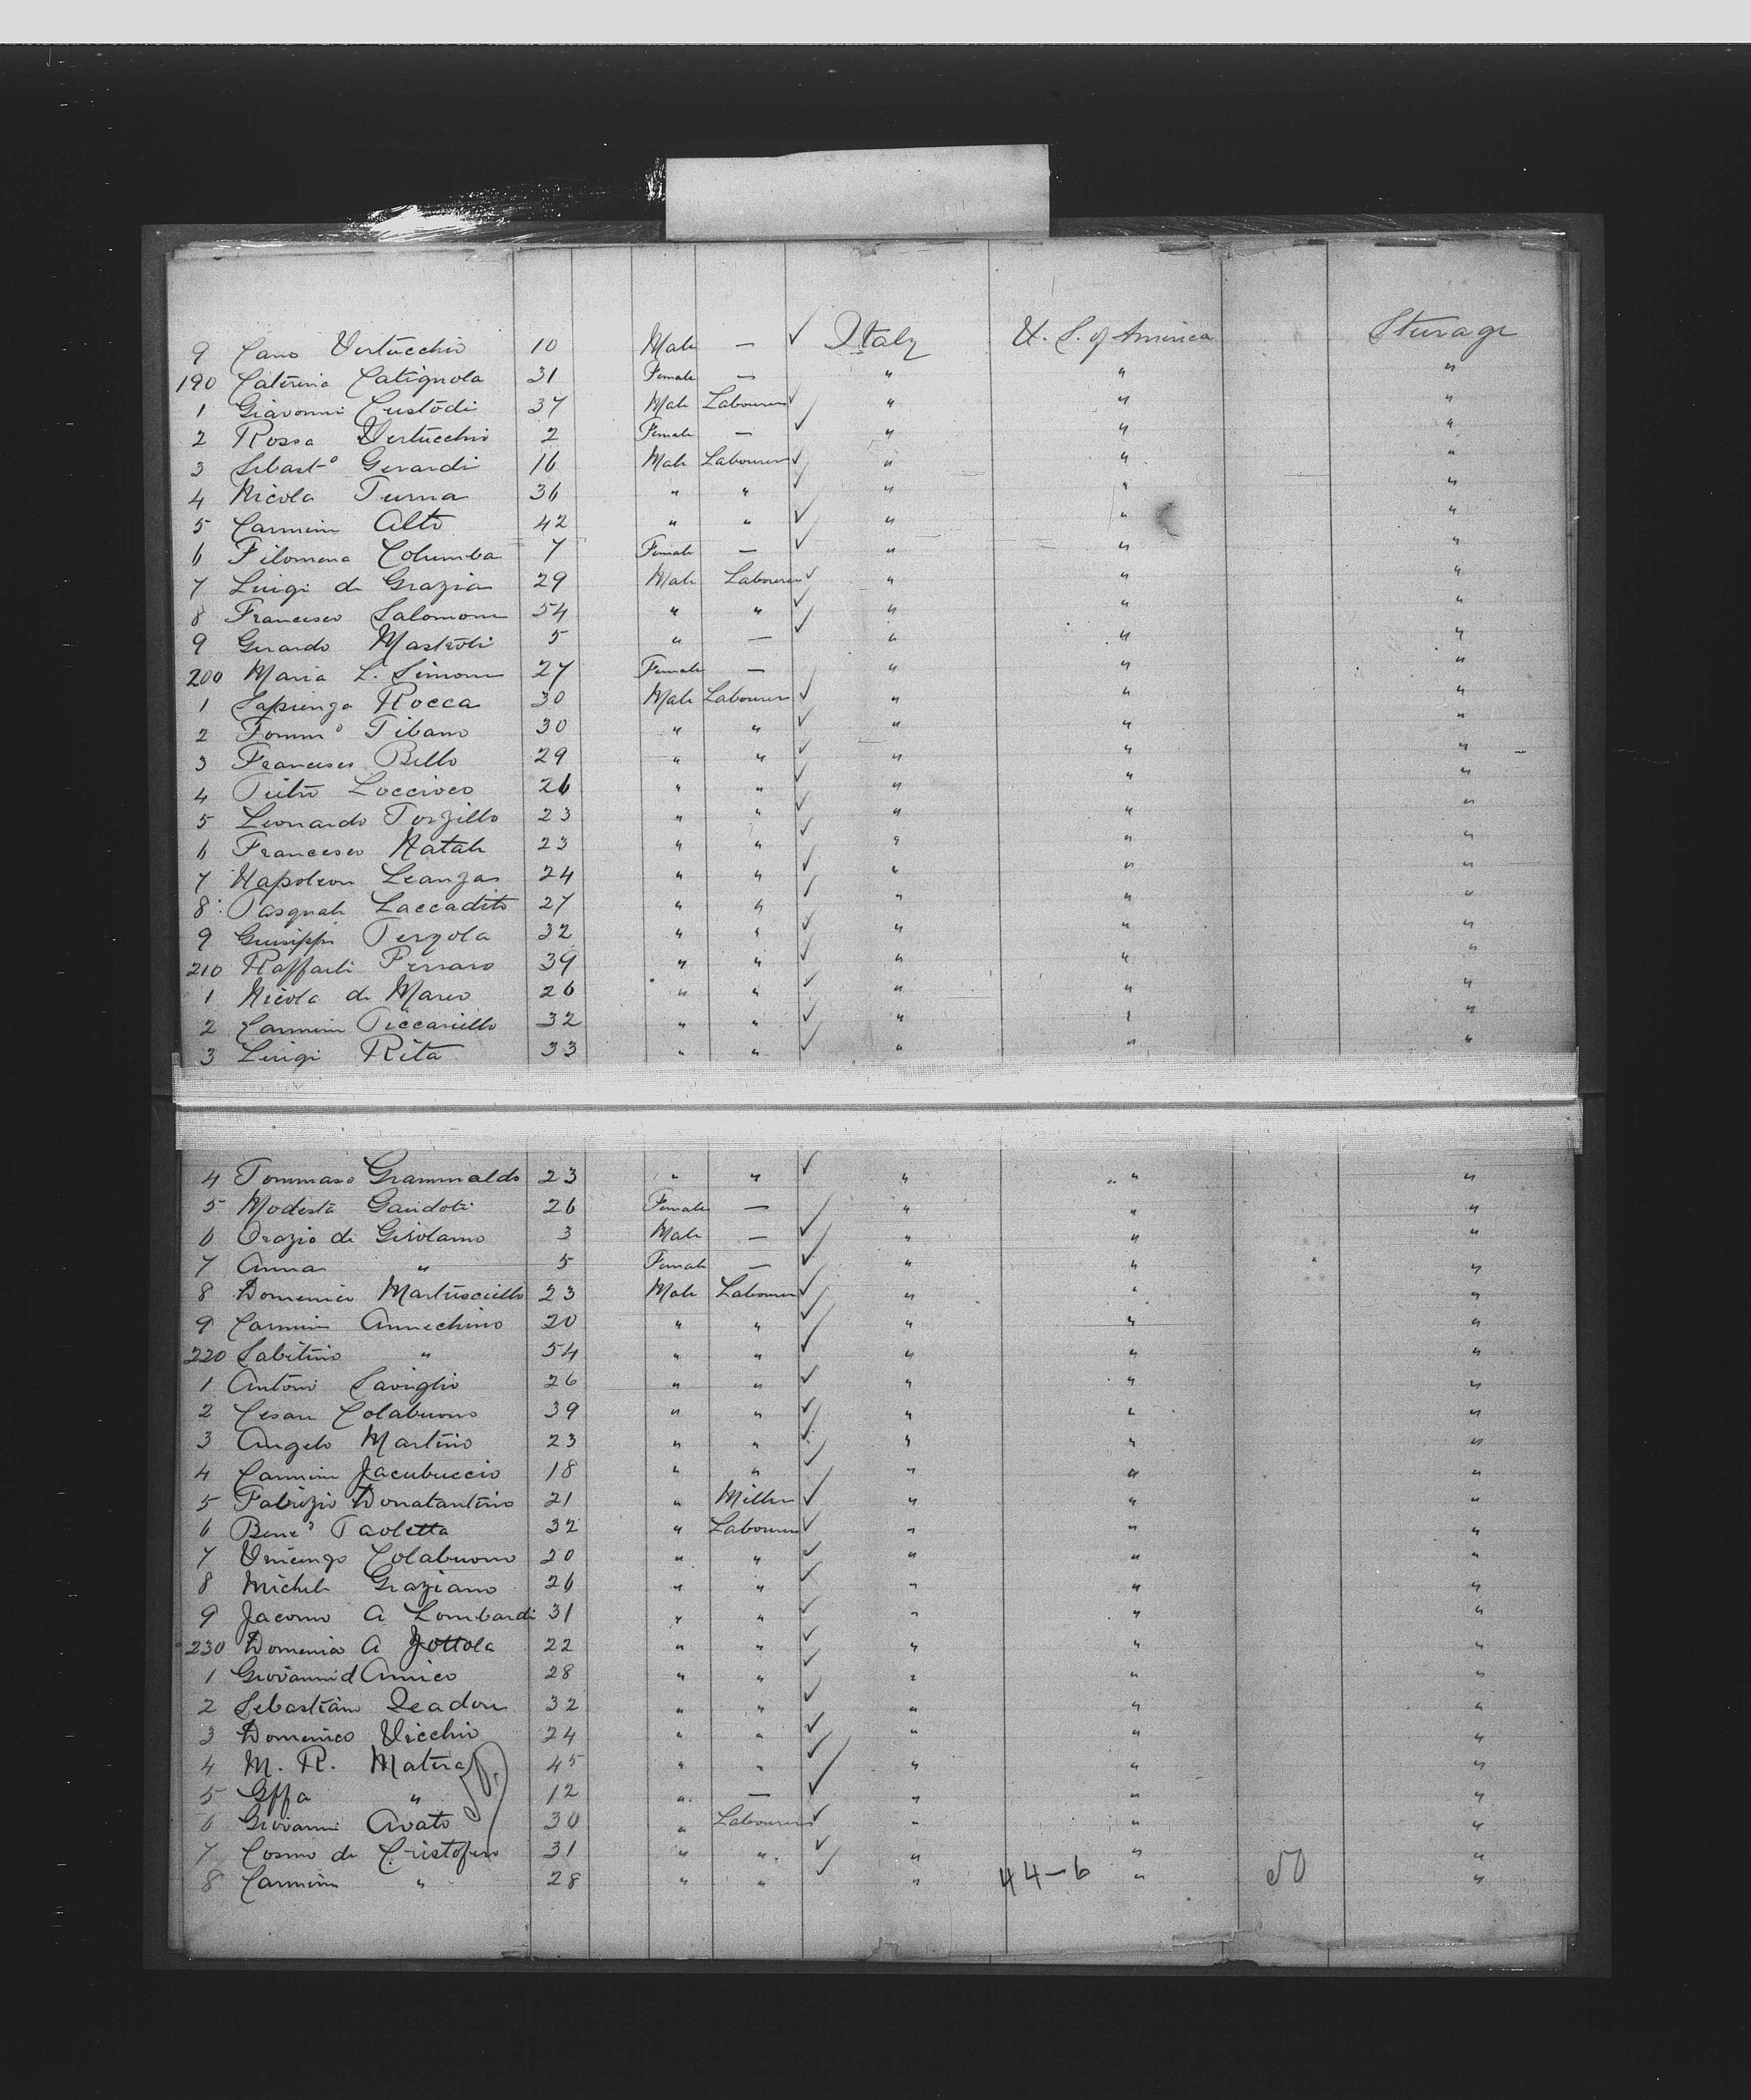 9 Cano Vertucchio 10 Male — ✓ Italy U. S. of America Steerage
190 Caterina Catignola 31 Female — " " "
1 Giavonni Custodi 37 Male Labourer ✓ " " "
2 Rossa Vertucchio 2 Female — ✓ " " "
3 Sebast° Gerardi 16 Male Labourer ✓ " " "
4 Nicola Turna 36 " " ✓ " " "
5 Carmine Alto 42 " " ✓ " " "
6 Filomena Columba 7 Female — ✓ " " "
7 Luigi de Grazia 29 Male Labourer ✓ " " "
8 Francesco Salomone 54 " " ✓ " " "
9 Gerardo Mastroti 5 " — ✓ " " "
200 Maria L. Simone 27 Female — " " "
1 Sapienza Rocca 30 Male Labourer ✓ " " "
2 Tomm° Tibano 30 " " ✓ " " "
3 Francesco Bello 29 " " ✓ " " "
4 Pietro Loccioco 26 " " ✓ " " "
5 Leonardo Torzillo 23 " " ✓ " " "
6 Francesco Natale 23 " " ✓ " " "
7 Napoleon Leanza 24 " " ✓ " " "
8 Pasquale Laccadito 27 " " ✓ " " "
9 Giuseppi Pergola 32 " " ✓ " " "
210 Raffaeli Ferraro 39 " " ✓ " " "
1 Nicola de Marco 26 " " ✓ " " "
2 Carmine Piccariello 32 " " ✓ " " "
3 Luigi Rita 33 " " ✓ " " "
4 Tommaso Grammaldo 23 " " ✓ " " "
5 Modesta Gaudoti 26 Female — " " "
6 Orazio di Girolamo 3 Male — ✓ " " "
7 Anna " 5 Female — ✓ " " "
8 Domenico Martusciello 23 Male Labourer ✓ " " "
9 Carmine Annechino 20 " " ✓ " " "
220 Sabitino " 54 " " ✓ " " "
1 Antoni Saviglio 26 " " ✓ " " "
2 Cesare Colabuono 39 " " ✓ " " "
3 Angelo Martino 23 " " ✓ " " "
4 Carmine Jacubuccio 18 " " ✓ " " "
5 Fabrizio Donatantino 21 " Miller ✓ " " "
6 Bene° Paoletta 32 " Labourer ✓ " " "
7 Vincenzo Colabuono 20 " " ✓ " " "
8 Michele Graziano 26 " " ✓ " " "
9 Jacomo A Lombardi 31 " " ✓ " " "
230 Domenico A Jottola 22 " " ✓ " " "
1 Giovanni d Amico 28 " " ✓ " " "
2 Sebastiano Leadore 32 " " ✓ " " "
3 Domenico Vecchio 24 " " ✓ " " "
4 M. R. Matera 45 " " ✓ " " "
5 Gffa " 12 " — ✓ " " "
6 Giovanni Avato 30 " Labourer ✓ " " "
7 Cosmo de Cristofero 31 " " ✓ " " "
8 Carmine " 28 " " ✓ " 44-6 " 50 "